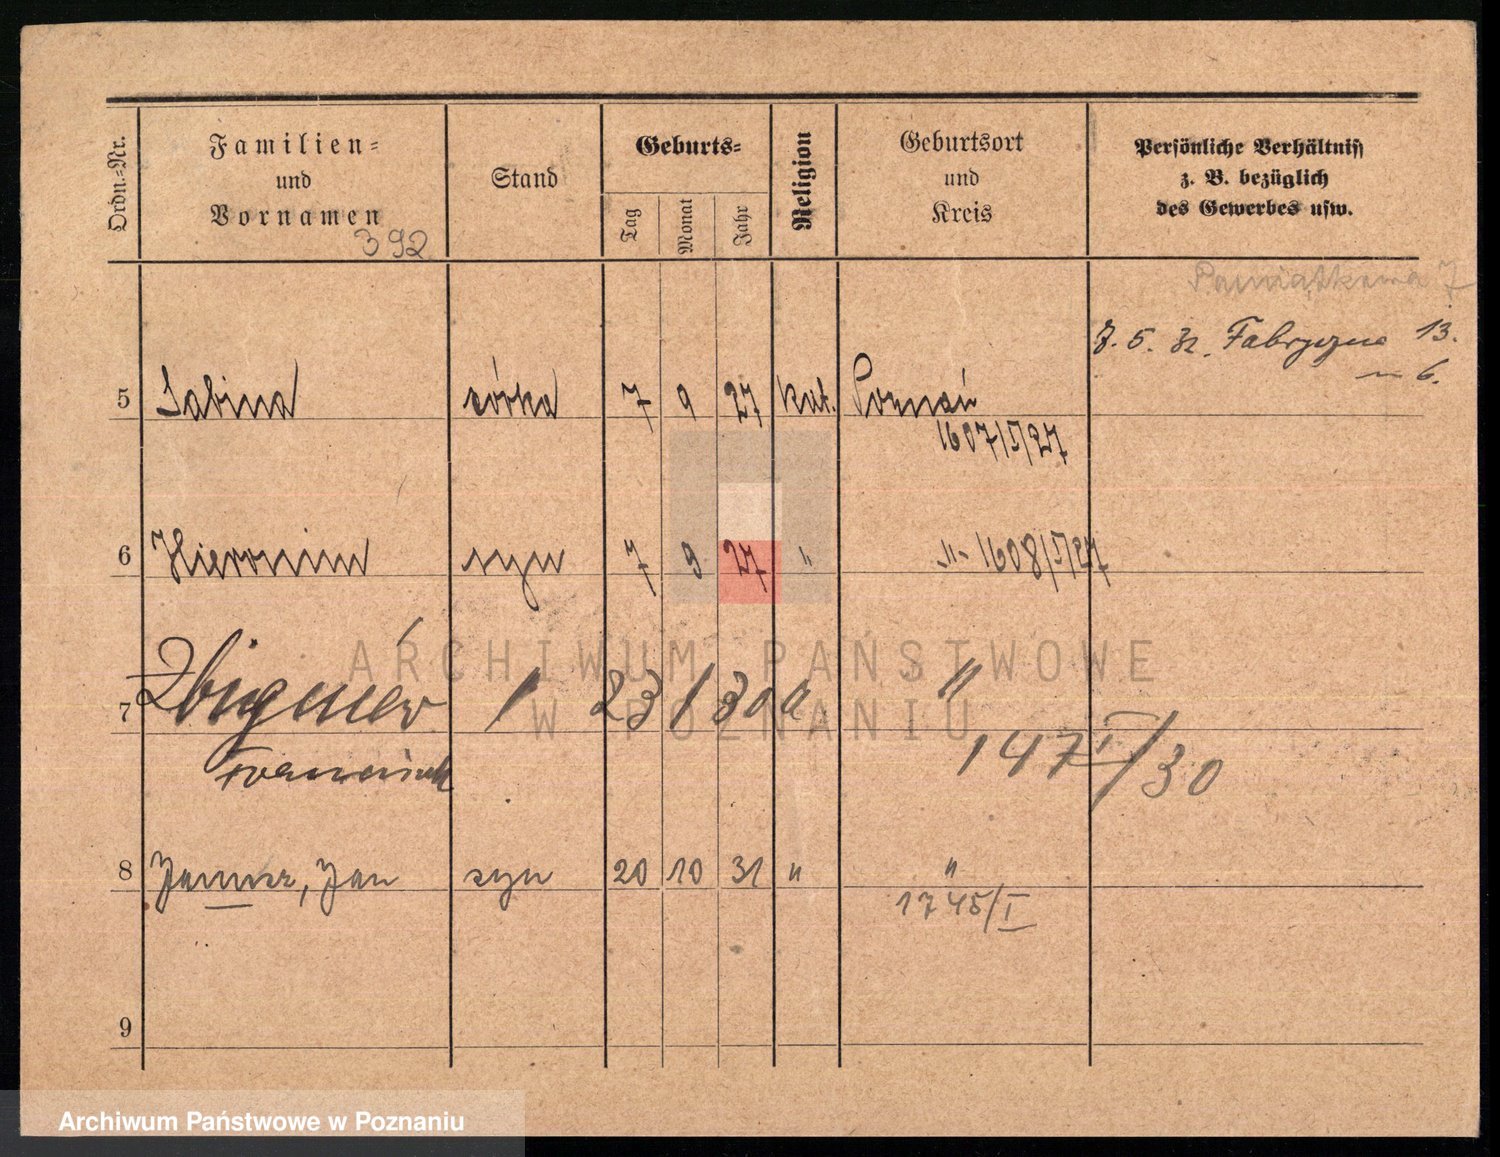 Ordn.-Nr.
Familien-
und
Vornamen
392
Stand
Geburts-
Tag
Monat
Jahr
Religion
Geburtsort
und
Kreis
Persönliche Verhältniss
z. B. bezüglich
des Gewerbes usw.
Pamiątkowa 7
7. 5. 32. Fabryczna 13.
m 6.
5 Sabina córka 7 9 27 kat. Poznań
1607/I/27
6 Hieronim syn 7 9 27 " -"- 1608/I/27
7 Zbigniew / 23 / 30 " "
Franciszek
147 I/30
8 Janusz, Jan syn 20 10 31 " "
1745/I
9
ARCHIWUM PAŃSTWOWE
W POZNANIU
Archiwum Państwowe w Poznaniu